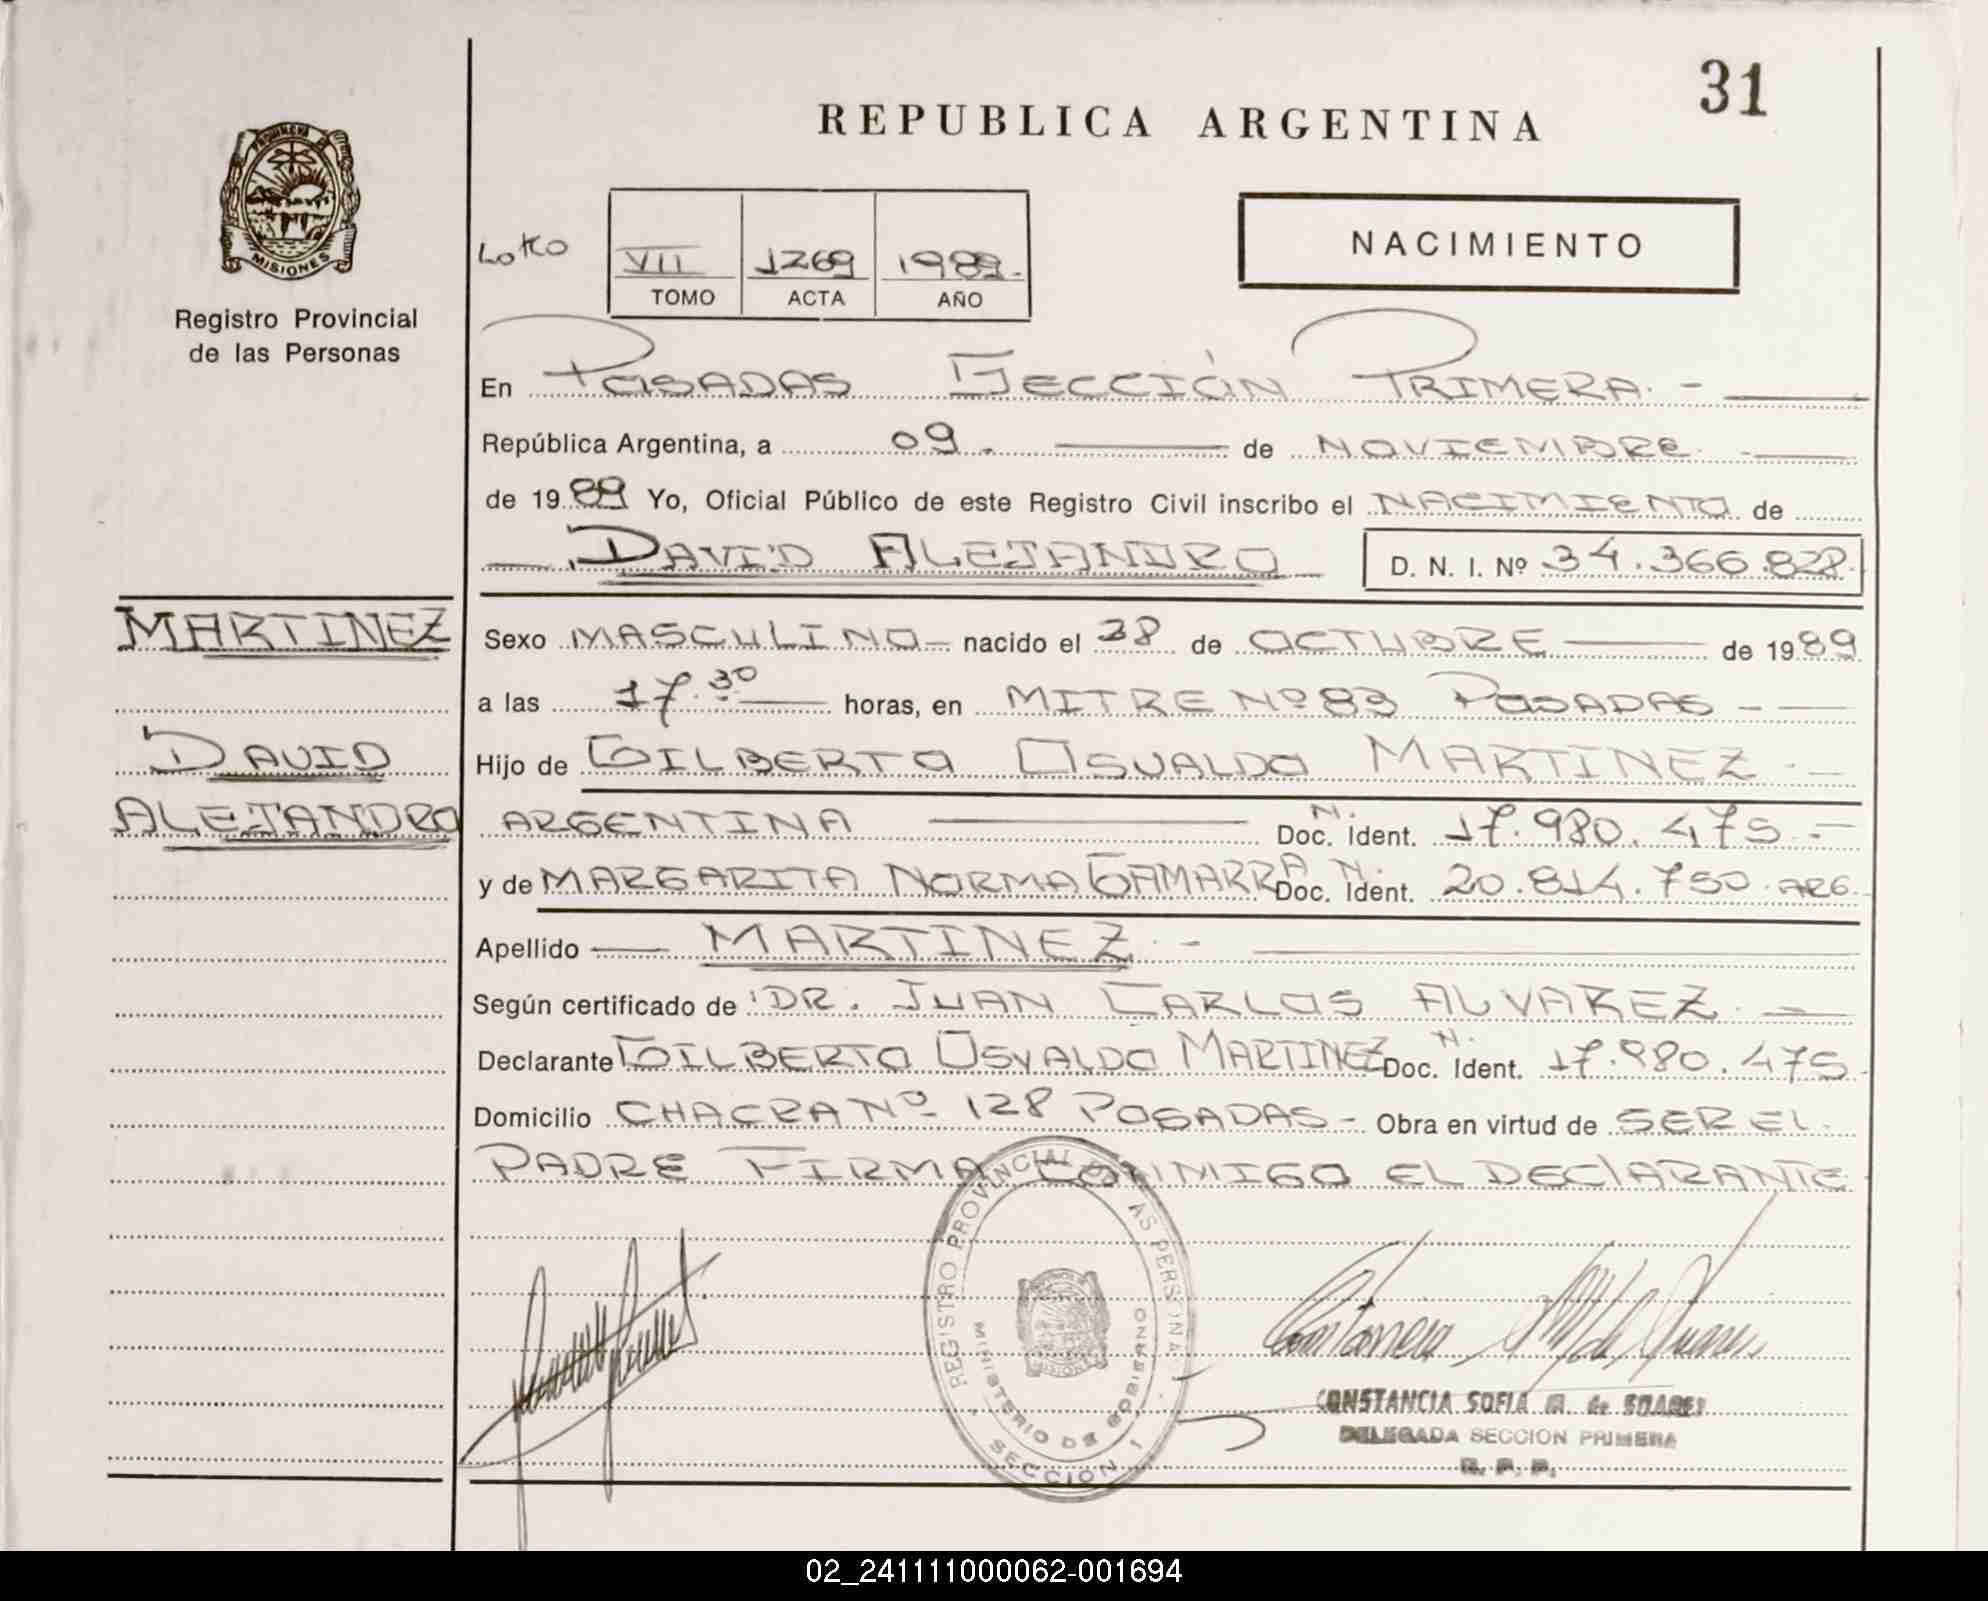 31
REPUBLICA ARGENTINA
PROVINCIA DE
MISIONES
Registro Provincial
de las Personas
VII 1269 1989.
TOMO ACTA AÑO
NACIMIENTO
En POSADAS SECCIÓN PRIMERA. -
República Argentina, a 09. de NOVIEMBRE.
de 1989 Yo, Oficial Público de este Registro Civil inscribo el NACIMIENTO de
DAVID ALEJANDRO D. N. I. Nº 34.366.828.
MARTINEZ
DAVID
ALEJANDRO
Sexo MASCULINO nacido el 28 de OCTUBRE de 1989
a las 17.30 horas, en MITRE Nº 83 POSADAS -
Hijo de GILBERTO OSVALDO MARTINEZ. -
ARGENTINA N. Doc. Ident. 17.980.475.-
y de MARGARITA NORMA GAMARRA N. Doc. Ident. 20.814.750. ARG.
Apellido MARTINEZ. -
Según certificado de DR. JUAN CARLOS ALVAREZ.
Declarante GILBERTO OSVALDO MARTINEZ N. Doc. Ident. 17.980.475
Domicilio CHACRA Nº 128 POSADAS - Obra en virtud de SER EL
PADRE FIRMA CONMIGO EL DECLARANTE
REGISTRO PROVINCIAL DE LAS PERSONAS
MINISTERIO DE GOBIERNO
SECCIÓN 1
CONSTANCIA SOFIA M. de SOARES
DELEGADA SECCION PRIMERA
R. P. P.
02_241111000062-001694